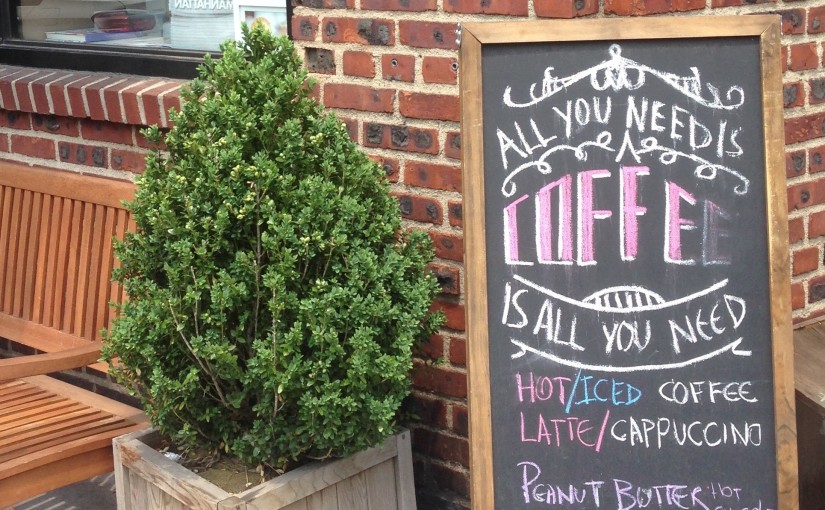 ALL YOU NEED IS
COFFEE
IS ALL YOU NEED
HOT/ICED COFFEE
LATTE/CAPPUCCINO
PEANUT BUTTER HOT